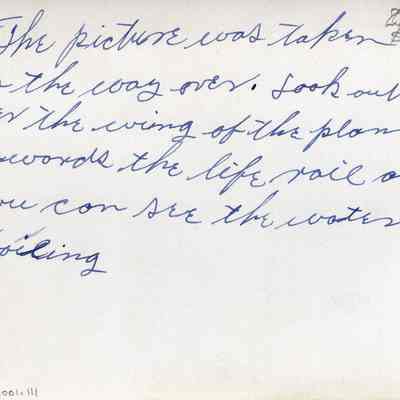 The picture was taken
the way over. Look out
the wing of the plan
wards the life rail a
ou can see the water
oiling
001.111